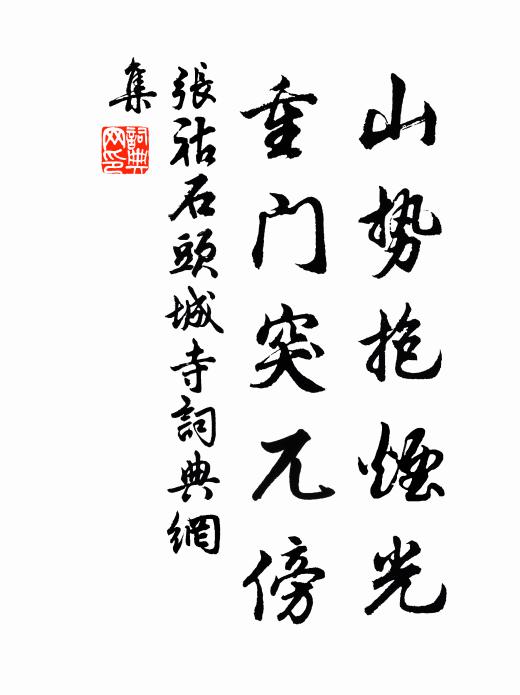 山势抱煙光
重门突兀傍
張祜石頭城寺詞典網
集
詞典网印